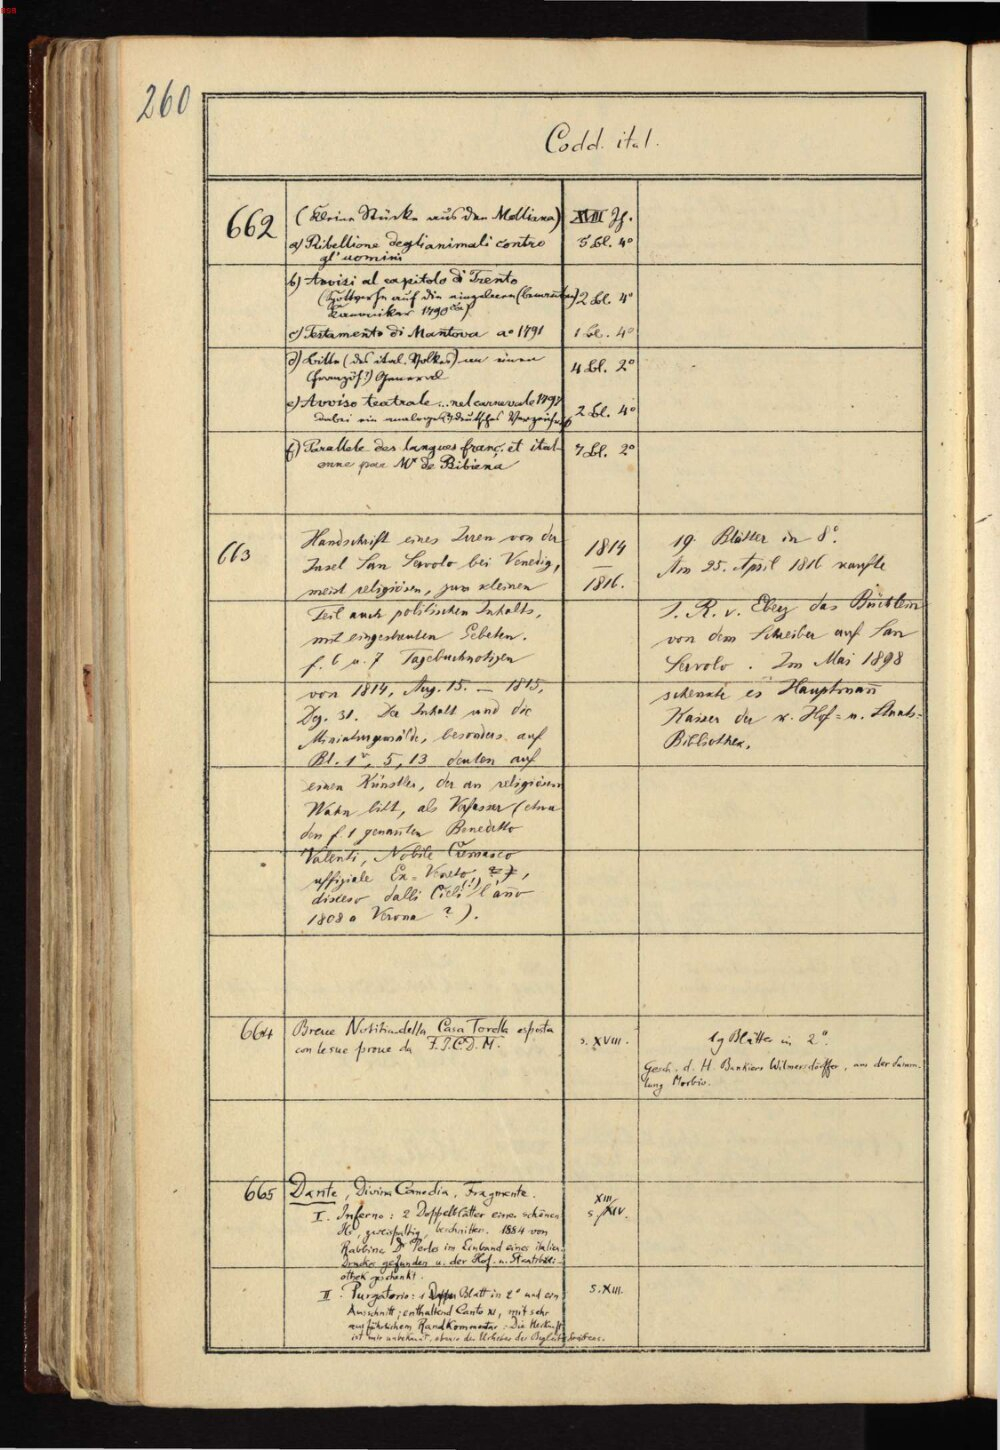 260
Codd. ital.
662
(Kleine Stücke aus der Molliana)
XVIII Jh.
a) Ribellione degli animali contro
5 Bl. 4°
gl'uomini
b) Avvisi al capitolo di Trento
(Spottverse auf die einzelnen
2 Bl. 4°
Kanoniker 1790
c) Testamento di Mantova a° 1791
1 Bl. 4°
d) Bitte (des ital. Volkes) an einen
4 Bl. 2°
(französ.?) General
e) Avviso teatrale... nel carnevale 1797
2 Bl. 4°
dabei ein analoges deutsches
f) Parallele des langues franç. et ital-
7 Bl. 2°
enne par Mr de Bibiena
663
Handschrift eines Irren von der
Insel San Servolo bei Venedig,
meist religiösen, zum kleinen
Teil auch politischen Inhalts,
mit eingestreuten Gebeten.
f. 6 u. 7 Tagebuchnotizen
von 1814, Aug. 15. — 1815,
Dez. 31. Der Inhalt und die
Miniaturgemälde, besonders auf
Bl. 1r, 5, 13 deuten auf
einen Künstler, der an religiösem
Wahn litt, als Verfasser (etwa
den f. 1 genannten Benedetto
Valenti, Nobile Cremasco
uffiziale Ex-Veneto,
disceso dalli Cieli (!) l'anno
1808 a Verona ?).
1814
—
1816.
19 Blätter in 8°.
Am 25. April 1816 kaufte
J. R. v. Eberz das Büchlein
von dem Schreiber auf San
Servolo. Im Mai 1898
schenkte es Hauptmann
Kaiser der k. Hof- u. Staats-
Bibliothek.
664
Breve Notitia della Casa Torella esposta
con le sue prove da F. J. C. D. M.
s. XVIII.
19 Blätter in 2°.
Gesch. d. H. Bankiers Wilmersdörffer, aus der Samm-
lung Morbio.
665
Dante, Divina Comedia, Fragmente.
I. Inferno: 2 Doppelblätter einer schönen
Hs, zweispaltig, beschnitten. 1884 von
Rabbiner Dr Perles im Einband eines italien.
Druckes gefunden u. der Hof- u. Staatsbibli-
othek geschenkt.
XIII
s. XIV.
II. Purgatorio: 1 Blatt in 2° und ein
Ausschnitt; enthaltend Canto XI, mit sehr
ausführlichem Randkommentar. Die Herkunft
ist mir unbekannt, ebenso der Urheber des Begleitschreibens.
s. XIII.